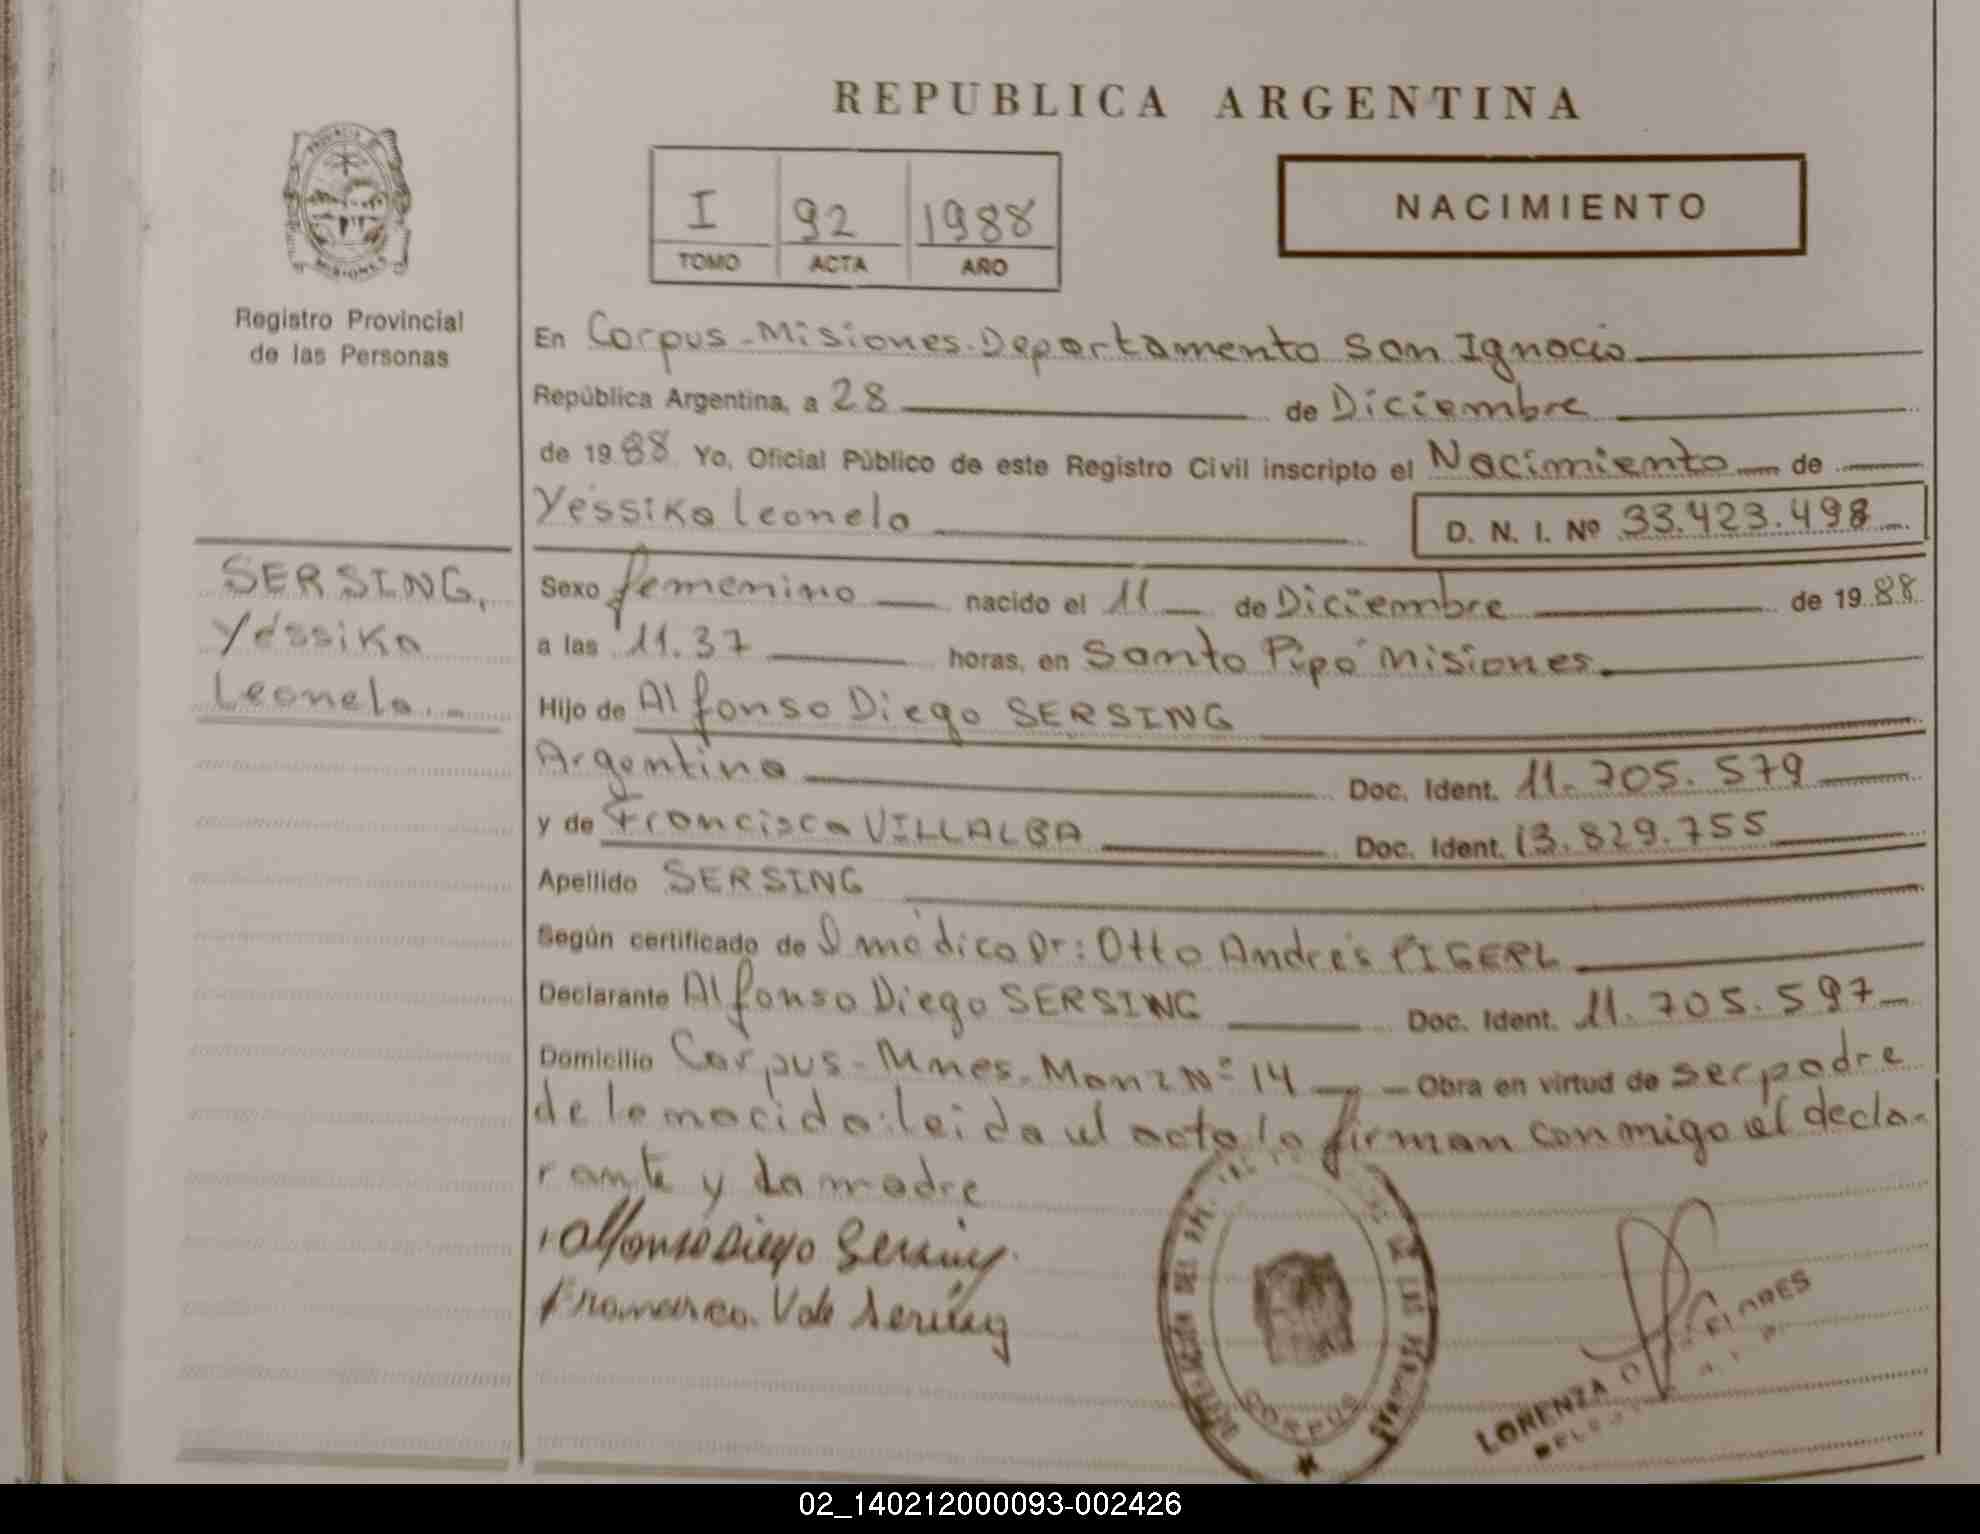 REPUBLICA ARGENTINA
PROVINCIA DE
MISIONES
Registro Provincial
de las Personas
I 92 1988
TOMO ACTA AÑO
NACIMIENTO
En Corpus-Misiones-Departamento San Ignacio
República Argentina, a 28 de Diciembre
de 1988 Yo, Oficial Público de este Registro Civil inscripto el Nacimiento de
Yessika Leonela D. N. I. Nº 33.423.498
SERSING,
Yessika
Leonela.-
Sexo femenino nacido el 11 de Diciembre de 1988
a las 11.37 horas, en Santo Pipó Misiones
Hijo de Alfonso Diego SERSING
Argentina Doc. Ident. 11.705.579
y de Francisca VILLALBA Doc. Ident. 13.829.755
Apellido SERSING
Según certificado de médico Dr: Otto Andrés PIGERL
Declarante Alfonso Diego SERSING Doc. Ident. 11.705.597
Domicilio Corpus-Mnes-Manz Nº 14 Obra en virtud de ser padre
de la nacida:leida el acta la firman conmigo el decla-
rante y La madre
Alfonso Diego Sersing
Francisca V de Sersing
DEL DE LAS PERSONAS
CORPUS
LORENZA FLORES
02_140212000093-002426